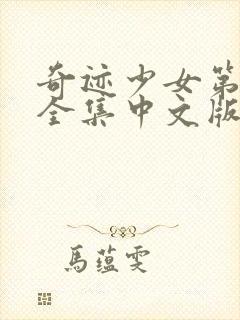 奇迹少女第
全集中文版
馬蕴雯